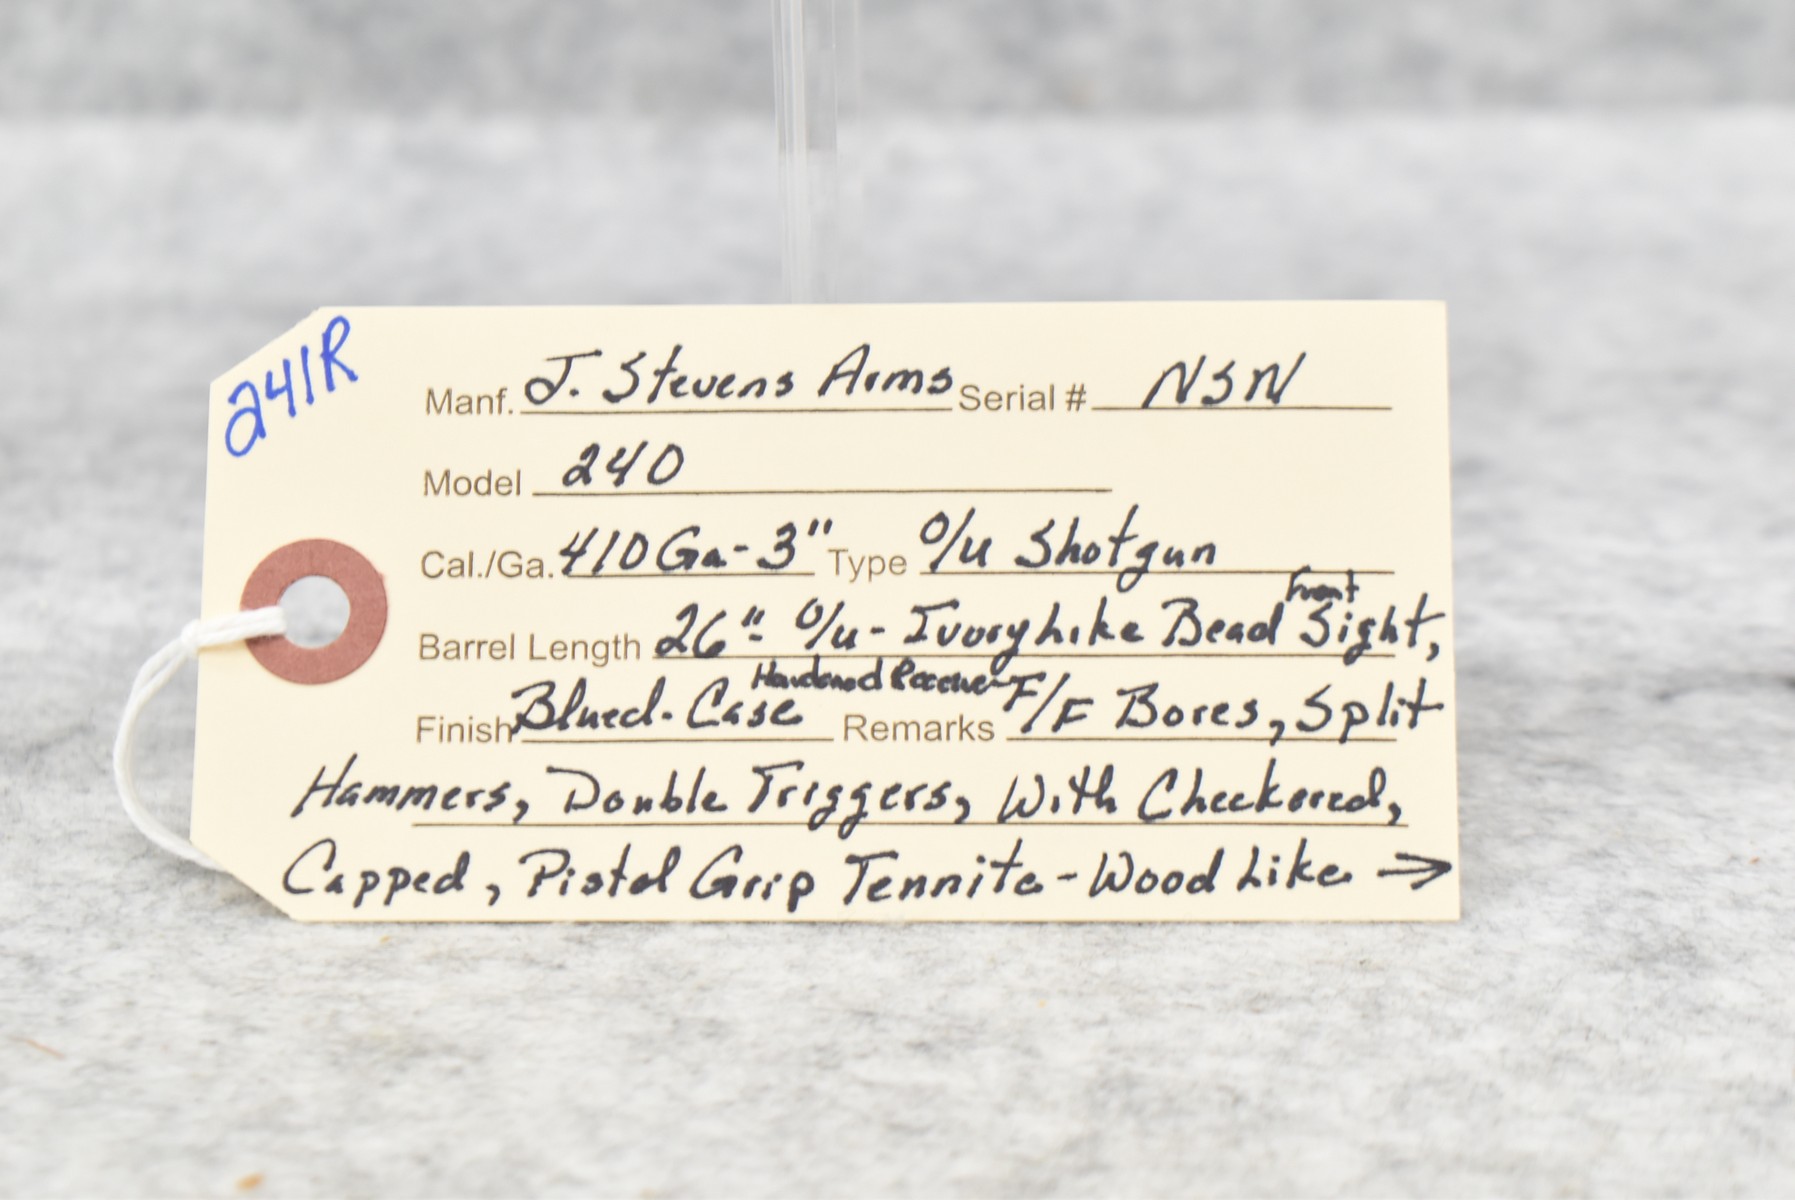 241R
Manf. J. Stevens Arms Serial # NSN
Model 240
Cal./Ga. 410 Ga-3" Type O/U Shotgun
Front
Barrel Length 26"- O/U- Ivory Like Bead Sight,
Hardened Receiver
Finish Blued-Case Remarks F/F Bores, Split
Hammers, Double Triggers, With Checkered,
Capped, Pistol Grip Tennite-Wood Like →